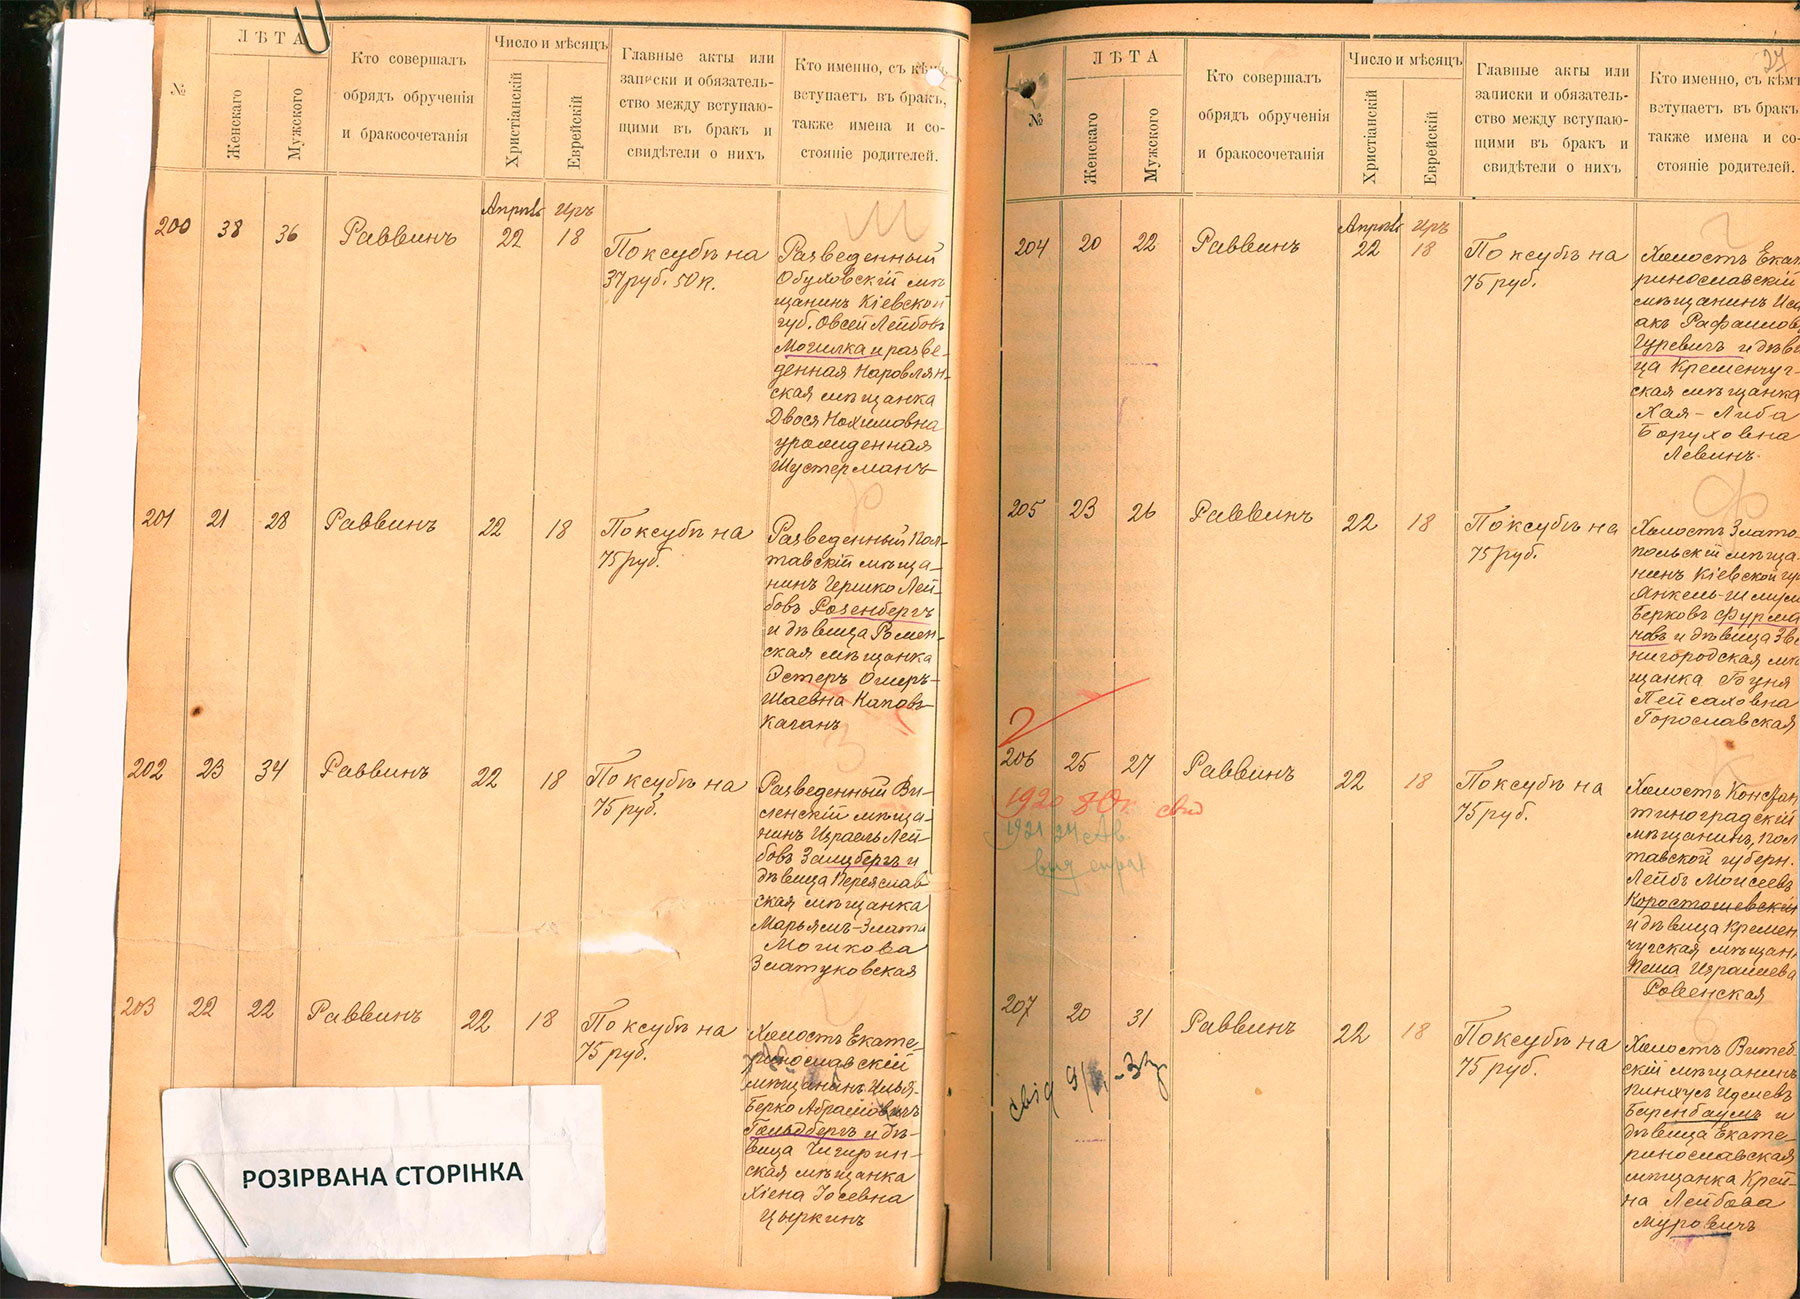 №
ЛѢТА
Женскаго
Мужского
Кто совершалъ
обрядъ обрученія
и бракосочетанія
Число и мѣсяцъ
Христіанскій
Еврейскій
Главные акты или
записки и обязатель-
ство между вступаю-
щими въ бракъ и
свидѣтели о нихъ
Кто именно, съ кѣмъ
вступаетъ въ бракъ,
также имена и со-
стояніе родителей.
200 38 36 Раввинъ
Апрѣль Иръ
22 18
По ксубѣ на
37 руб. 50 к.
Разведенный
Обуховскій мѣ
щанинъ Кіевской
губ. Овсей Лейбовъ
Могилка и разве-
денная Наровлян-
ская мѣщанка
Двося Нохимовна
урожденная
Шустерманъ
201 21 28 Раввинъ 22 18
По ксубѣ на
75 руб.
Разведенный Пол-
тавскій мѣща-
нинъ Гершко Лей-
бовъ Розенбергъ
и дѣвица Ромен-
ская мѣщанка
Эстеръ Ошеръ-
Шаевна Каповъ-
Каганъ
202 23 34 Раввинъ 22 18
По ксубѣ на
75 руб.
Разведенный Ви-
ленскій мѣща-
нинъ Израэль Лей-
бовъ Залцбергъ и
дѣвица Переяслав
ская мѣщанка
Марьямъ-Злата
Златуковская
203 22 22 Раввинъ 22 18
По ксубѣ на
75 руб.
Холостъ Екате-
ринославскій
мѣщанинъ Илья-
Берко Абрамовичъ
Гольдбергъ и дѣ-
вица Чигирин-
ская мѣщанка
Хіена Іосевна
Цыркинъ
РОЗІРВАНА СТОРІНКА
24
№
ЛѢТА
Женскаго
Мужского
Кто совершалъ
обрядъ обрученія
и бракосочетанія
Число и мѣсяцъ
Христіанскій
Еврейскій
Главные акты или
записки и обязатель-
ство между вступаю-
щими въ бракъ и
свидѣтели о нихъ
Кто именно, съ кѣмъ
вступаетъ въ бракъ
также имена и со-
стояніе родителей.
204 20 22 Раввинъ
Апрѣль Иръ
22 18
По ксубѣ на
75 руб.
Холостъ Екат
ринославскій
мѣщанинъ Иса
акъ Рафаиловъ
Гуревичъ и дѣви
ца Кременчуг-
ская мѣщанка
Хая-Либа
Боруховна
Левинъ.
205 23 26 Раввинъ 22 18
По ксубѣ на
75 руб.
Холостъ Злато-
польскій мѣща-
нинъ Кіевской гу
Янкель-Шмул
Берковъ Фурма
новъ и дѣвица Зве
нигородская мѣ
щанка Буня
Пейсаховна
Гораславская
206 25 27 Раввинъ 22 18
1920
1921 24
По ксубѣ на
75 руб.
Холостъ Констан
тиноградскій
мѣщанинъ Пол
тавской губерн.
Лейбъ Моисеевъ
Коростошевскій
и дѣвица Кремен
чугская мѣщан
Песя Израилева
Ровенская
207 20 31 Раввинъ 22 18
По ксубѣ на
75 руб.
Холостъ Витеб-
скій мѣщанинъ
Пинхусъ Иделевъ
Беренбаумъ и
дѣвица Екате-
ринославская
мѣщанка Крей-
на Лейбова
Муровичъ